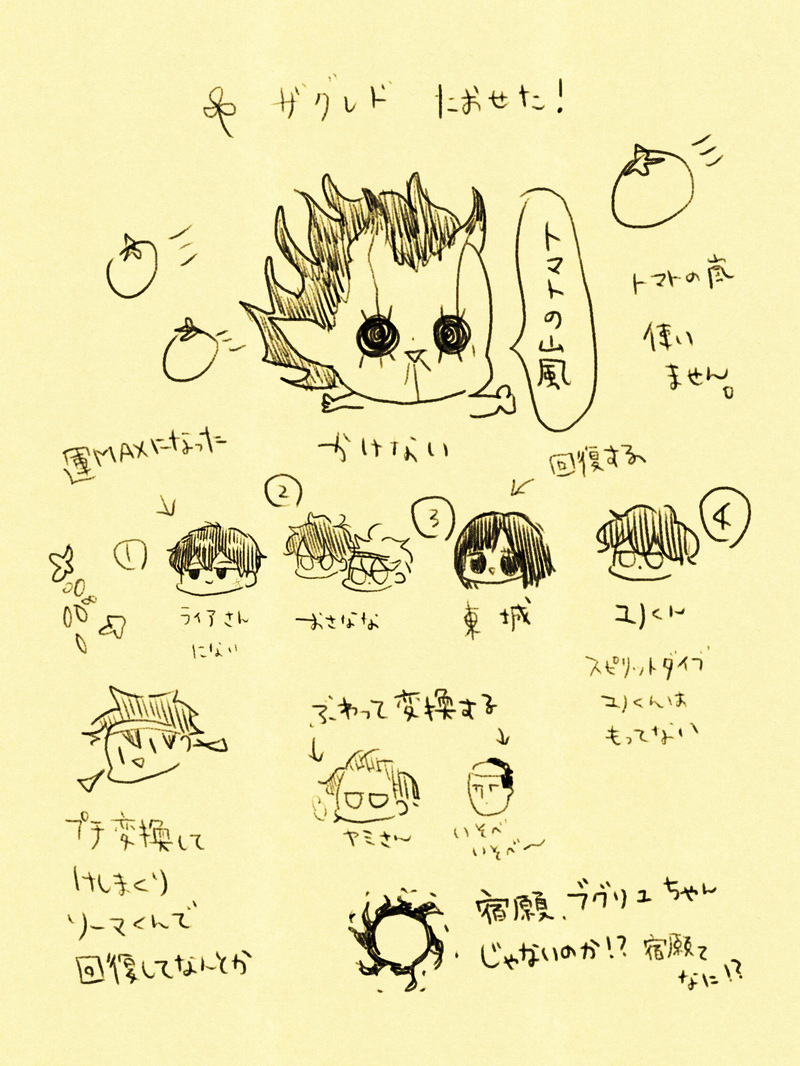 ザグレド たおせた!
トマトの山風
トマトの嵐
使い
ません。
かけない
運MAXになった
回復する
①
②
③
④
ライアさん
にない
おさなな
東城
ユノくん
スピリットダイブ
ユノくんは
もってない
ぶわって変換する
ヤミさん
いそべ
いそべ〜
プチ変換して
けしまくり
ソーマくんで
回復してなんとか
宿願、ブグリュちゃん
じゃないのか!?
宿願て
なに!?